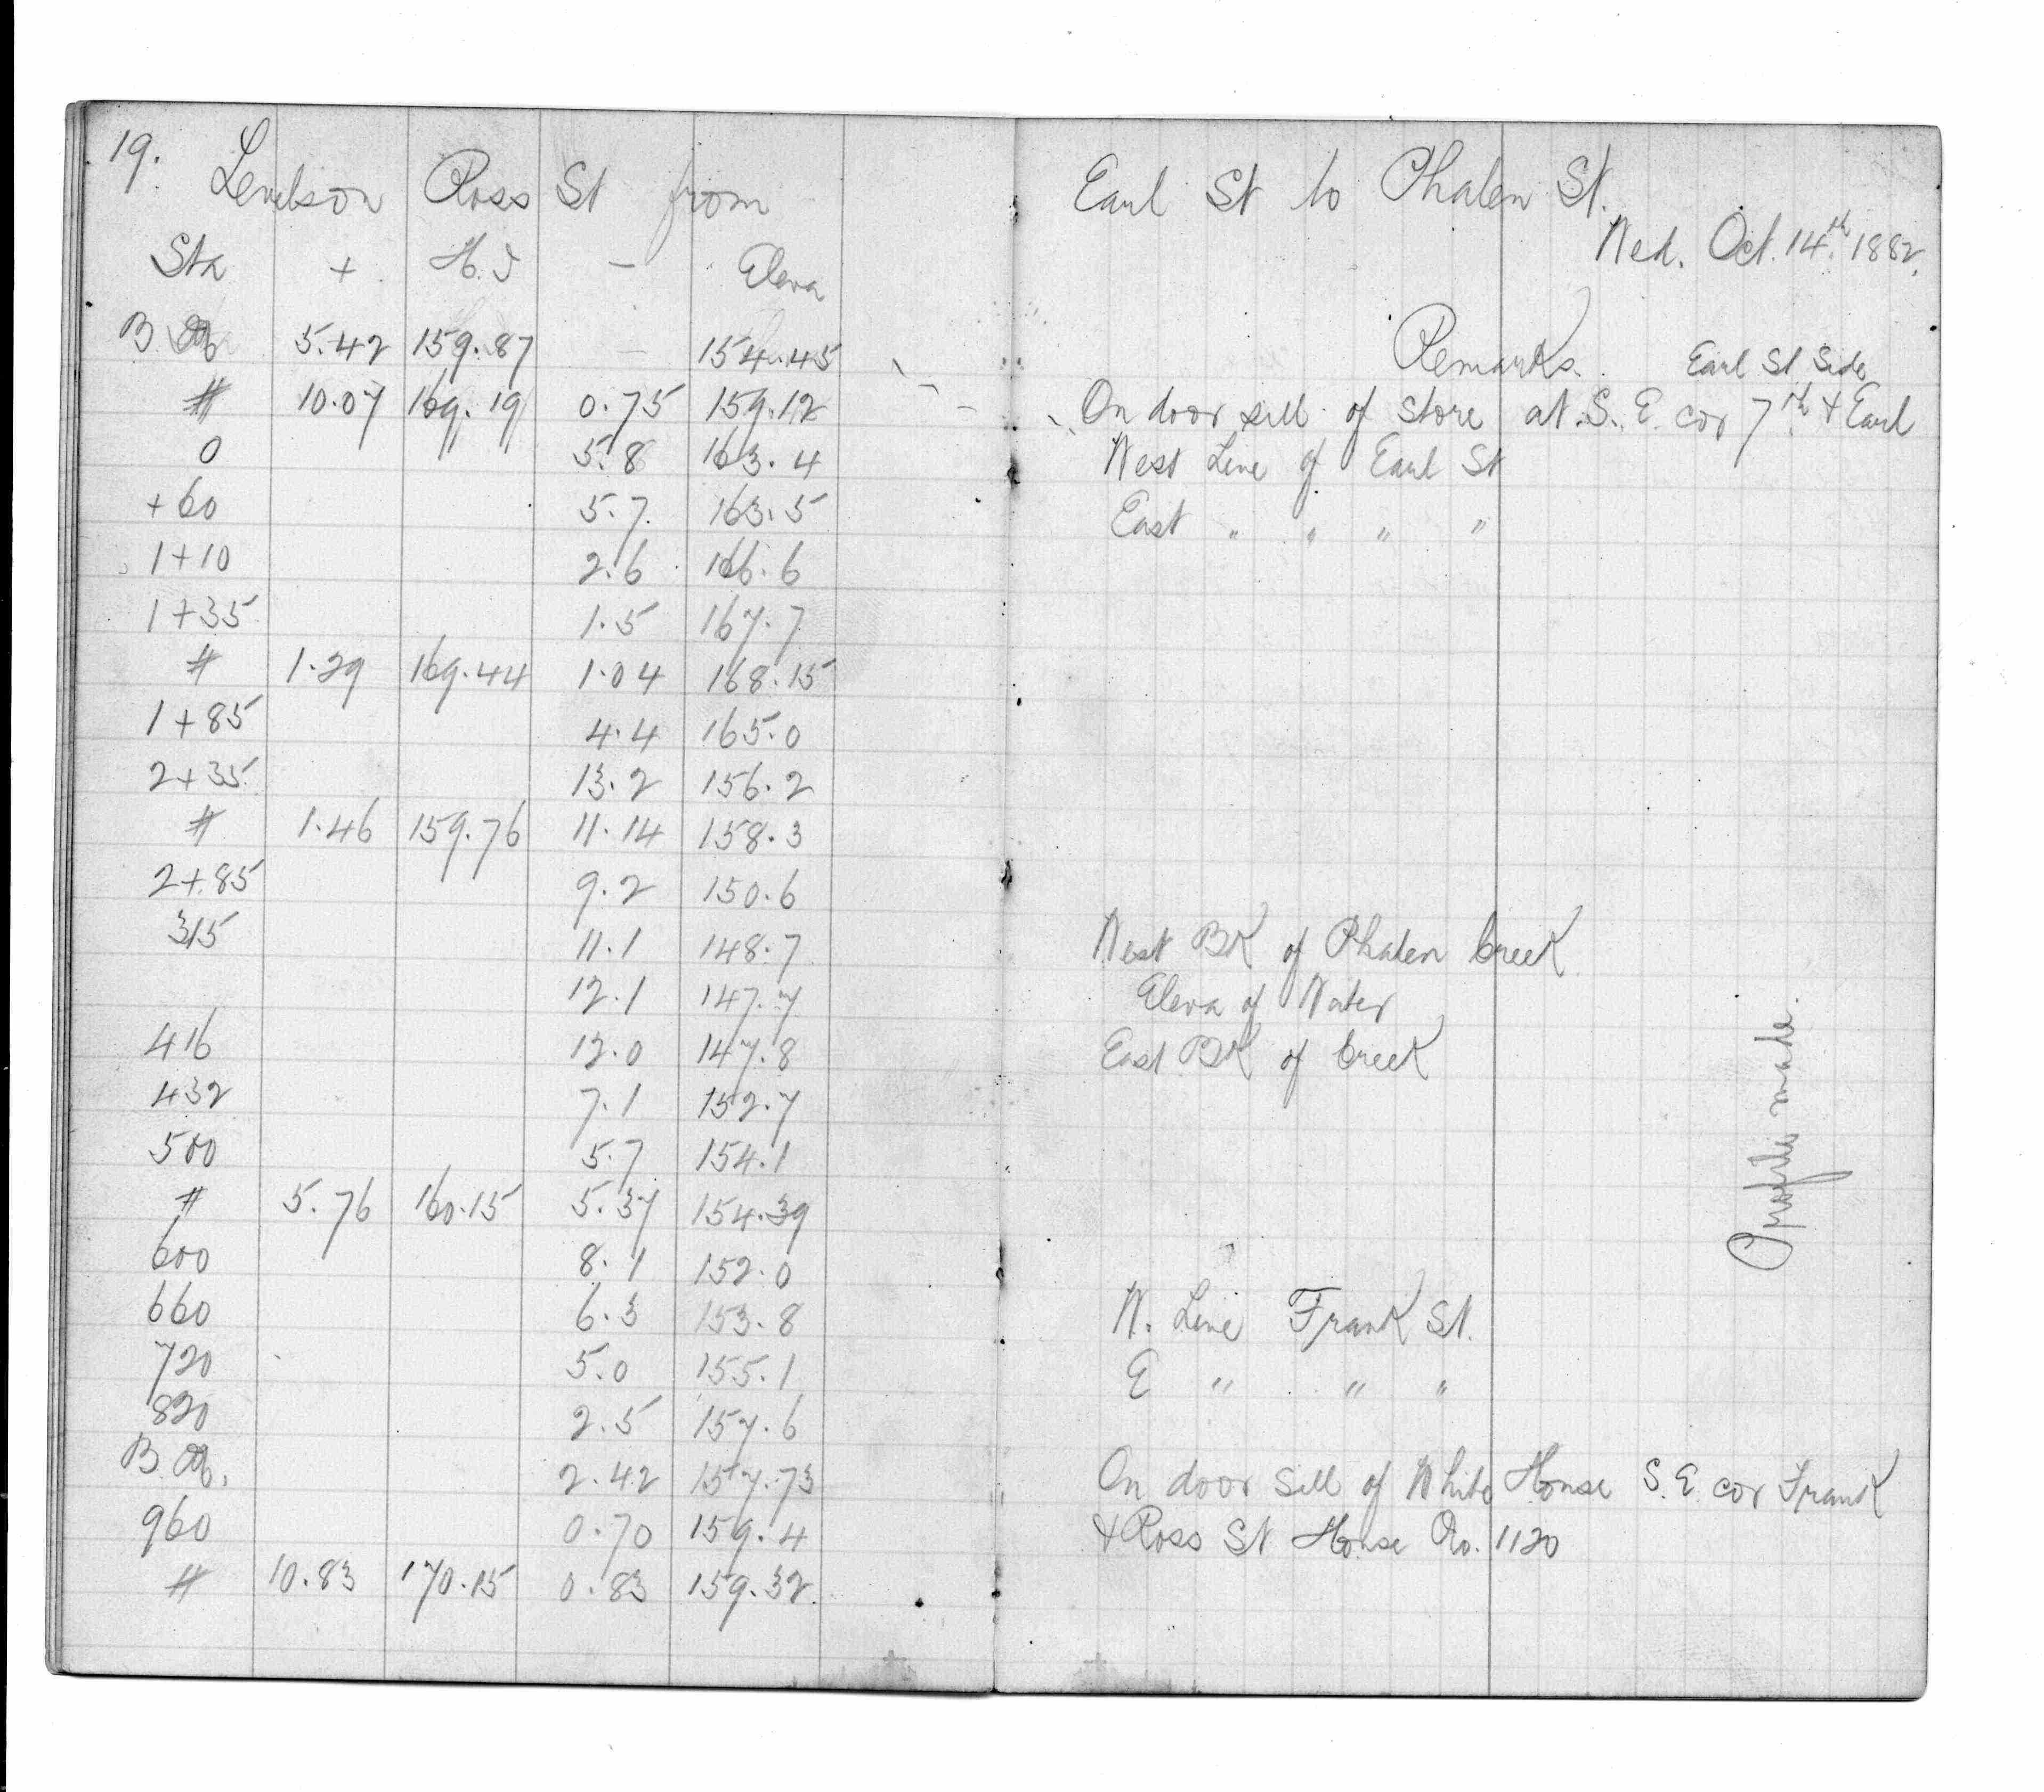 19. Levels on Ross St from
Earl St to Phalen St.
Wed. Oct. 14.th 1882.
Sta + H.I - Eleva
Remarks. Earl St Side
B M 5.42 159.87 - 154.45
On door sill of store at S. E. cor 7th & Earl
# 10.07 169.19 0.75 159.12
West Line of Earl St
0 5.8 163.4
East " " " "
+60 5.7 163.5
1+10 2.6 166.6
1+35 1.5 167.7
# 1.29 169.44 1.04 168.15
1+85 4.4 165.0
2+35 13.2 156.2
# 1.46 159.76 11.14 158.3
2+85 9.2 150.6
315 11.1 148.7
West BK of Phalen Creek
12.1 147.7
Eleva of Water
416 12.0 147.8
East BK of Creek
432 7.1 152.7
500 5.7 154.1
# 5.76 160.15 5.37 154.39
600 8.1 152.0
660 6.3 153.8
W. Line Frank St.
720 5.0 155.1
E " " "
820 2.5 157.6
B M. 2.42 157.73
On door Sill of White House S. E. cor Frank
960 0.70 159.4
& Ross St House No. 1120
# 10.83 170.15 0.83 159.32
Profile made.